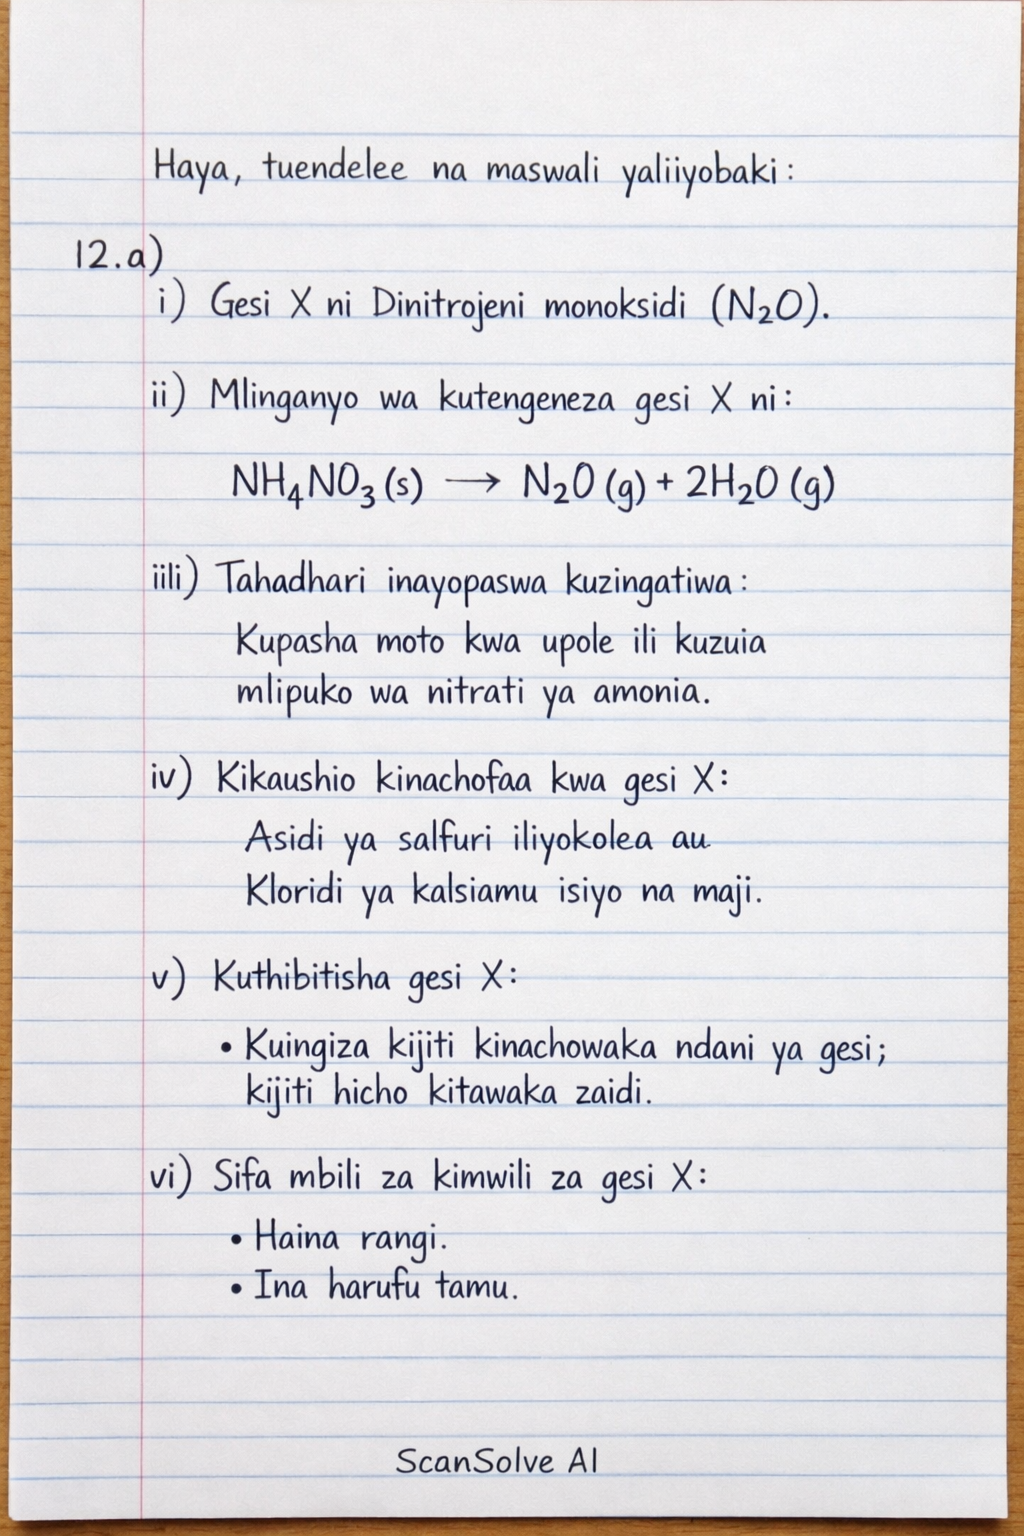 Haya, tuendelee na maswali yaliiyobaki:
12.a)
i) Gesi X ni Dinitrojeni monoksidi (N₂O).
ii) Mlinganyo wa kutengeneza gesi X ni:
NH₄NO₃(s) → N₂O (g) + 2H₂O (g)
iili) Tahadhari inayopaswa kuzingatiwa:
Kupasha moto kwa upole ili kuzuia
mlipuko wa nitrati ya amonia.
iv) Kikaushio kinachofaa kwa gesi X:
Asidi ya salfuri iliyokolea au
Kloridi ya kalsiamu isiyo na maji.
v) Kuthibitisha gesi X:
• Kuingiza kijiti kinachowaka ndani ya gesi;
kijiti hicho kitawaka zaidi.
vi) Sifa mbili za kimwili za gesi X:
• Haina rangi.
• Ina harufu tamu.
ScanSolve AI